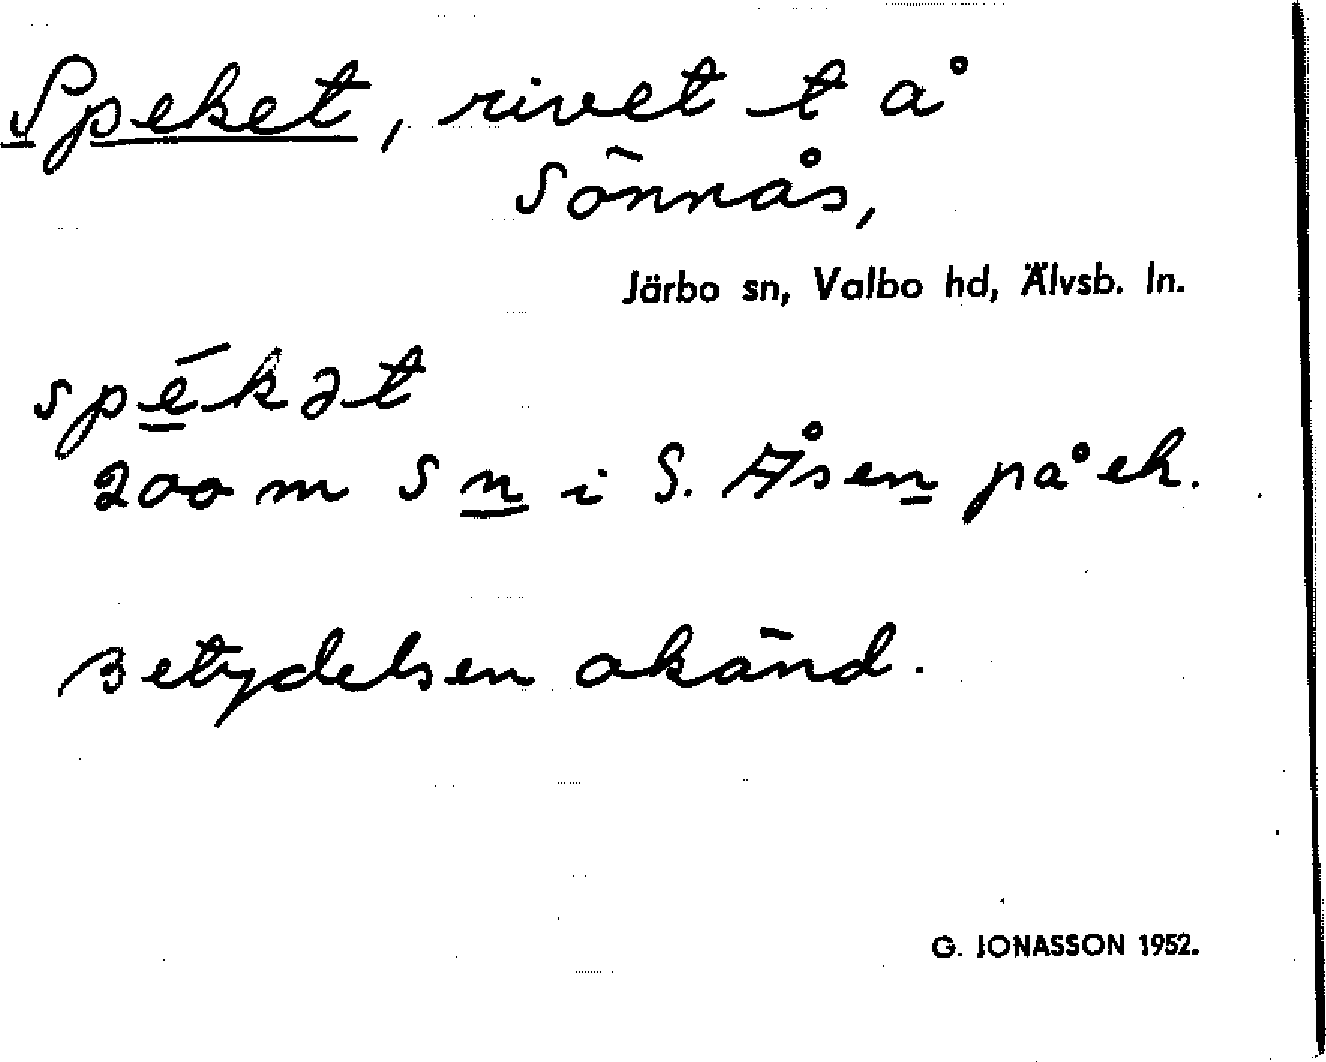 Speket, rivet t å
Sönnås,
Järbo sn, Valbo hd, Älvsb. ln.
spē̱kət
200 m S n i S. Åsen på ek.
Betydelsen okänd.
G. JONASSON 1952.